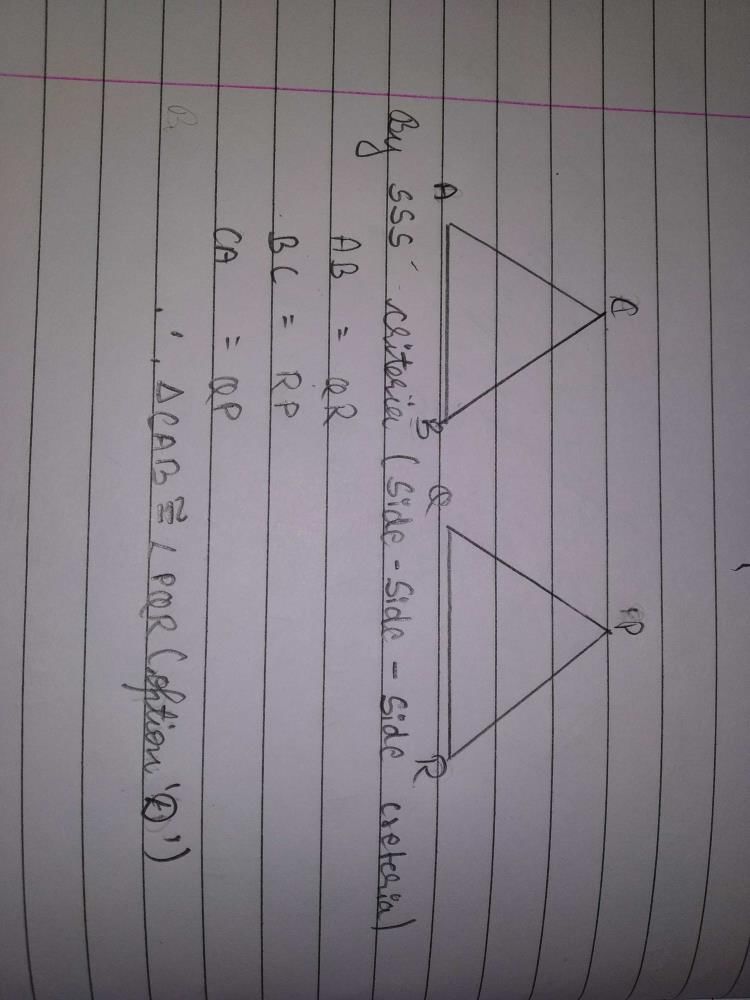 C P
A B Q R
By SSS criteria (Side-Side-Side creteria)
AB = QR
BC = RP
CA = QP
∴ ΔCAB ≅ ∠PQR (option 'D')